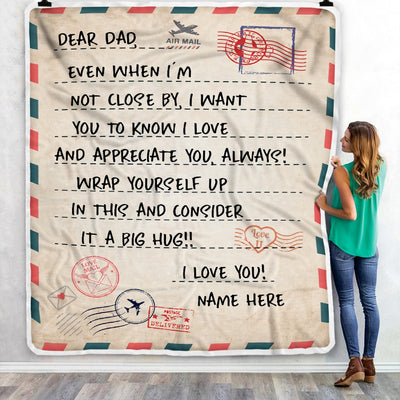 DEAR DAD,
AIR MAIL
EVEN WHEN I'M
NOT CLOSE BY, I WANT
YOU TO KNOW I LOVE
AND APPRECIATE YOU, ALWAYS!
WRAP YOURSELF UP
IN THIS AND CONSIDER
IT A BIG HUG!!
Love
I LOVE YOU!
NAME HERE
LOVE MAIL
POSTAGE
DELIVERED